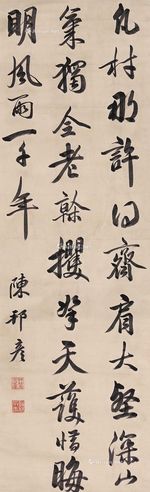 凡材那許得齊肩大壑深山
氣獨全老榦攫拏天護惜晦
明風雨一千年
陳邦彥